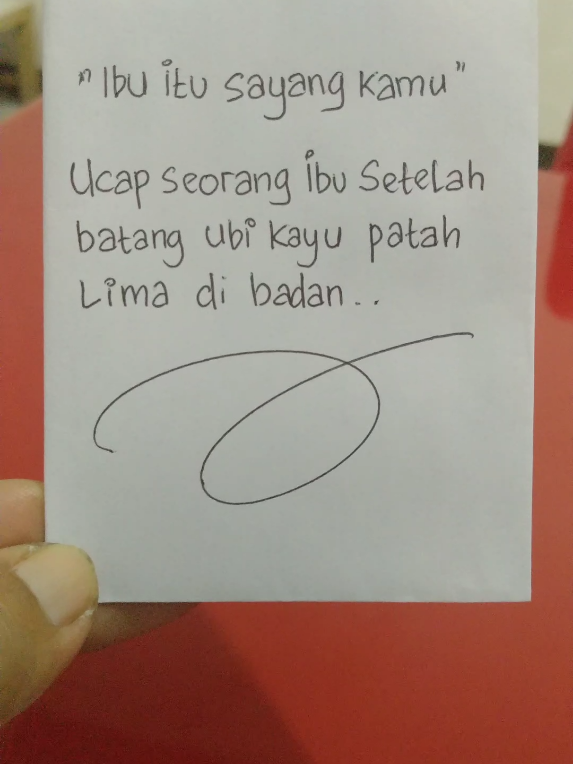 "Ibu itu sayang kamu"
Ucap seorang ibu setelah
batang ubi kayu patah
Lima di badan..